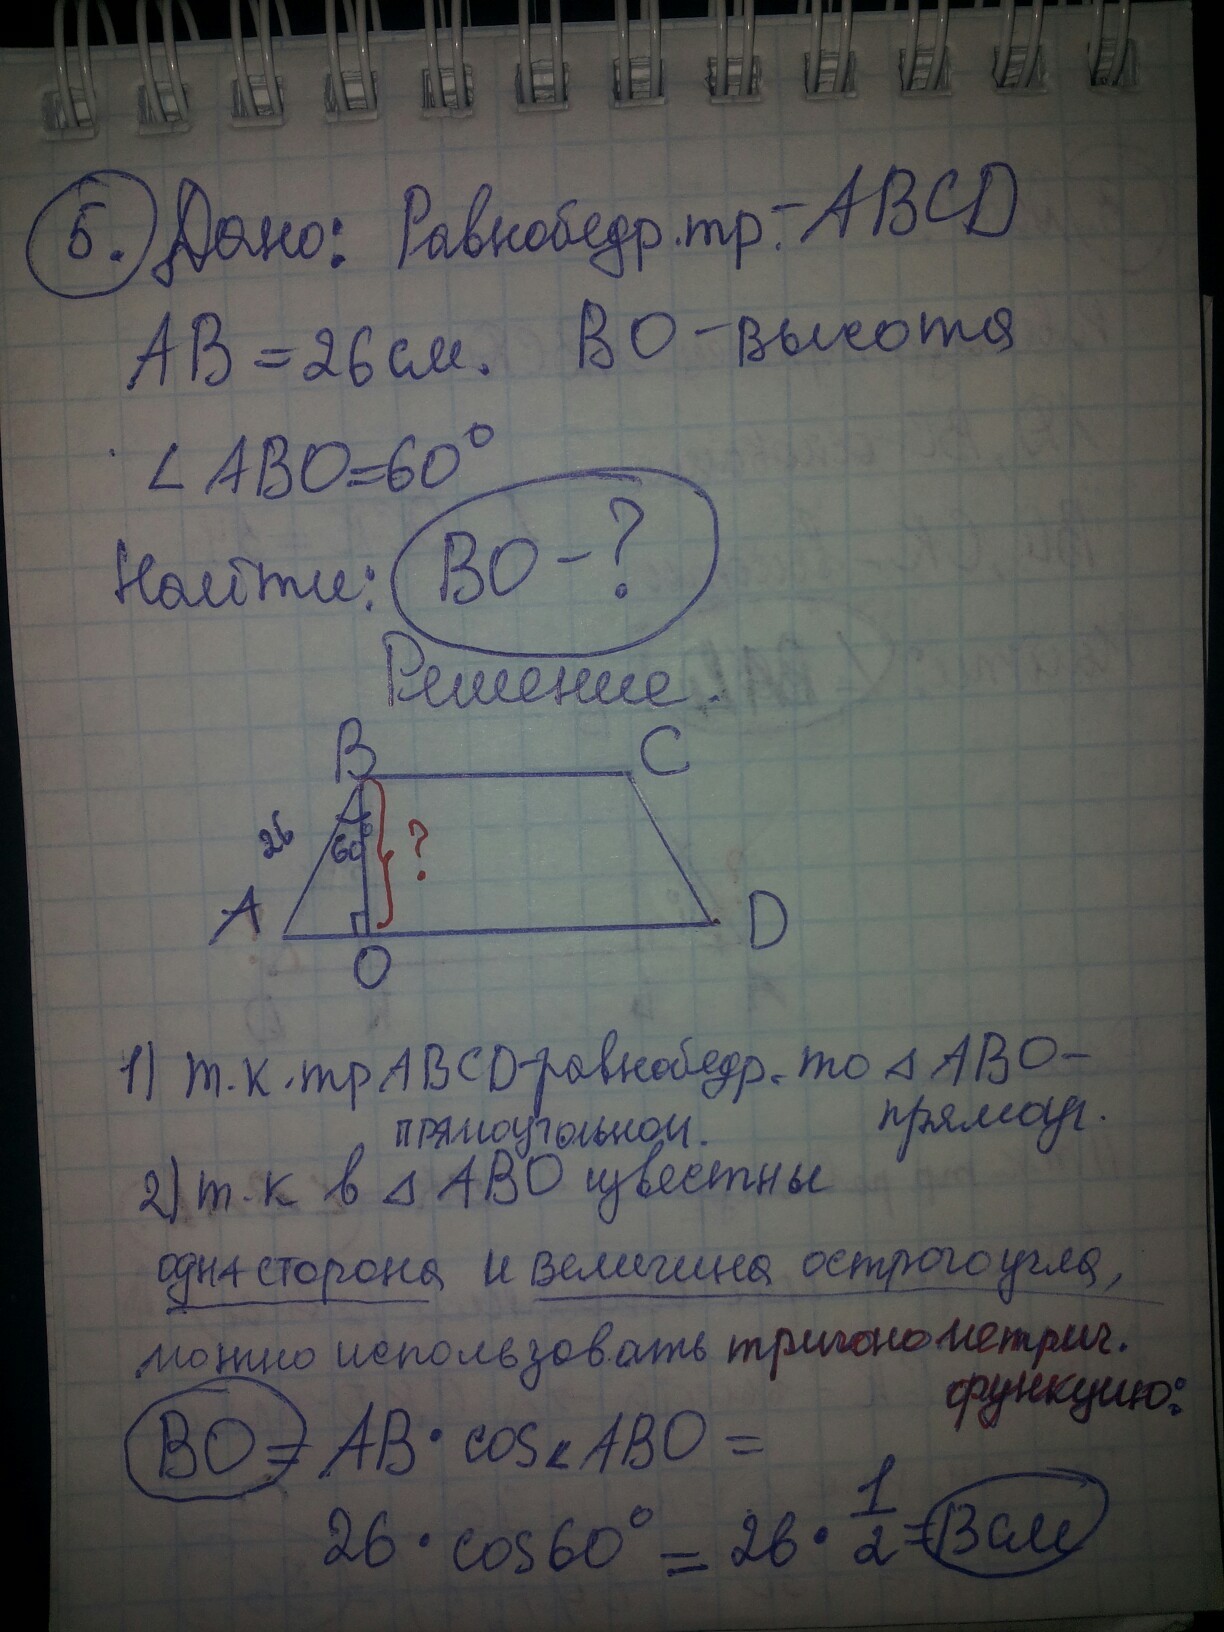 5. Дано: Равнобедр.тр.-ABCD
AB=26см. BO-высота
∠ABO=60°
Найти: BO-?
Решение.
B C
26 60° ?
A D
O
1) т.к.тр ABCD-равнобедр. то △ABO-
прямоугольной. прямоуг.
2) т.к в △ABO известны
одна сторона и величина острого угла,
можно использовать тригонометрич.
функцию:
BO = AB · cos∠ABO =
26 · cos60° = 26 · 1/2 = 13см